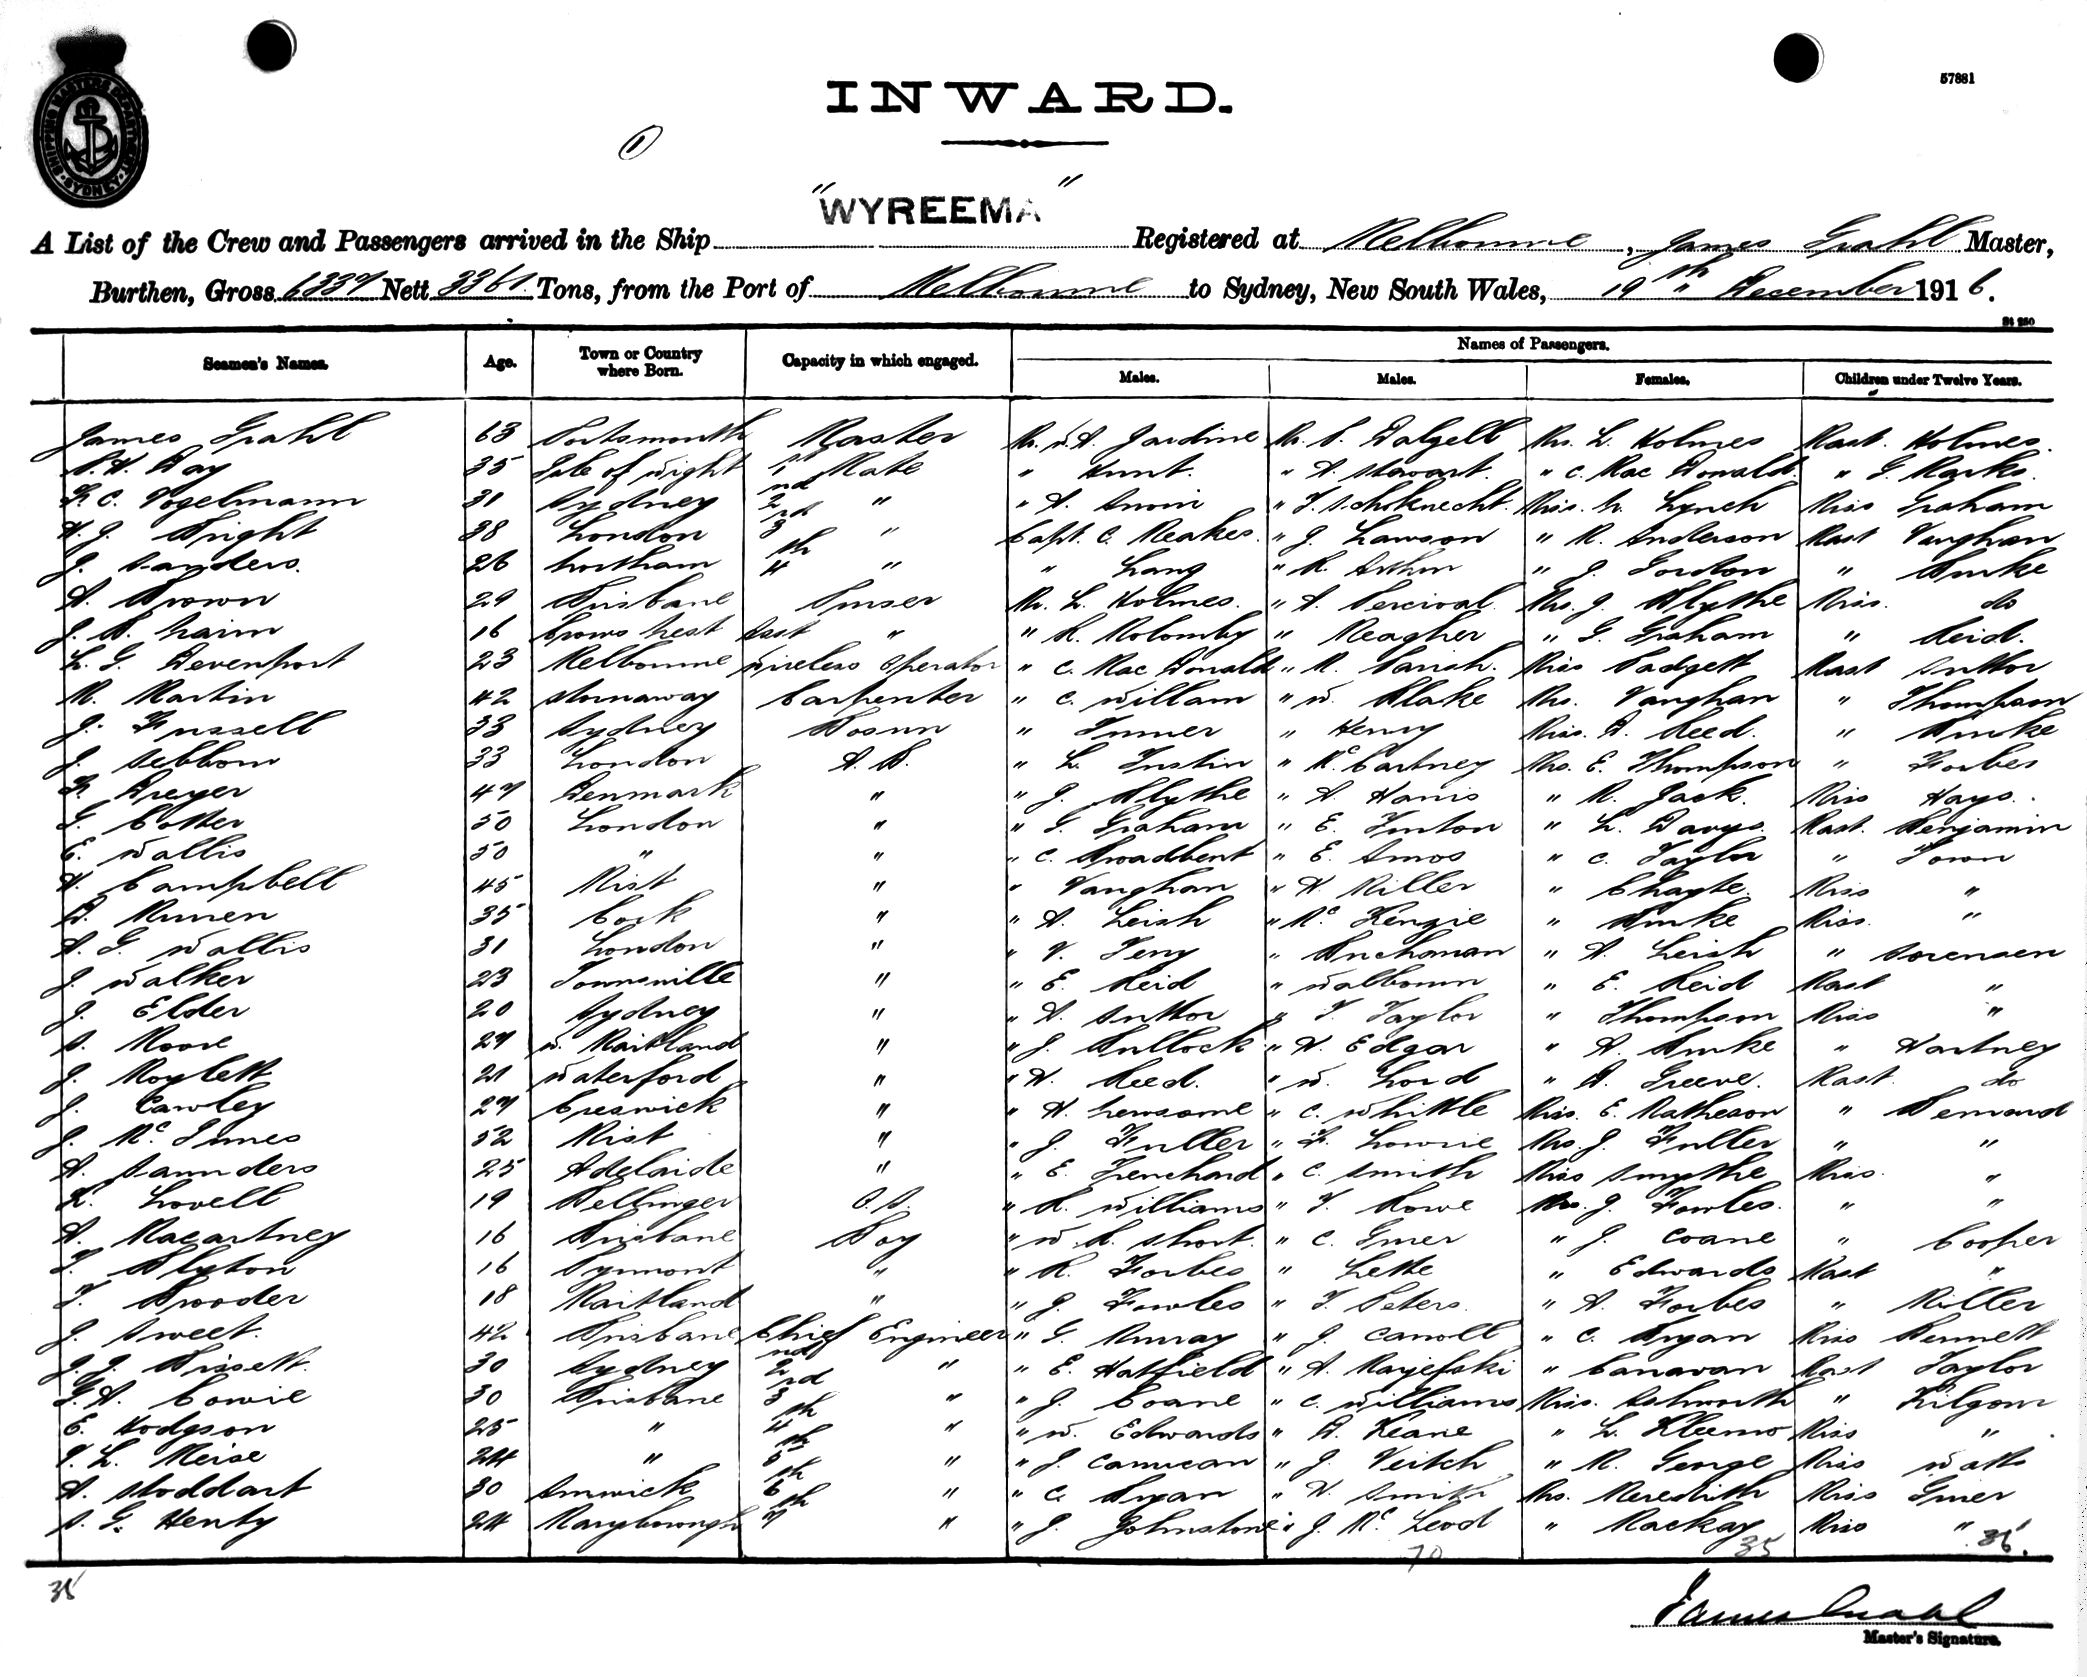 57881
SHIPPING MASTERS DEPARTMENT SYDNEY
INWARD.
1
"WYREEMA"
A List of the Crew and Passengers arrived in the Ship Registered at Melbourne, James Grahl Master,
Burthen, Gross 6337 Nett 3361 Tons, from the Port of Melbourne to Sydney, New South Wales, 19th December 1916.
St 250
Seamen's Names. Age. Town or Country where Born. Capacity in which engaged. Names of Passengers.
Males. Males. Females. Children under Twelve Years.
James Grahl 63 Portsmouth Master Mr. W. A. Jardine Mr. P. Dalzell Mrs. L. Holmes Mast. Holmes.
Day 35 Isle of Wight 1st Mate " Hunt. " A. Stewart. " C. MacDonald " G. Marks.
C. Vogelmann 31 Sydney 2nd " " A. " T. Schoknecht. Miss. N. Lynch Miss Graham
H. J. Bright 38 London 3rd " Capt. C. Meakes. " J. Lawson " M. Anderson Mast Vaughan
J. Sanders. 26 Northam 4th " " Lang " R. Arthur " J. Gordon " Burke
A. Brown 29 Brisbane Purser Mr. L. Holmes. " A. Percival. Mrs. J. Blythe Miss. do
J. B. Nairn 16 Crows Nest Asst " " R. Molomby " Meagher " G. Graham " Reid.
L. G. Devenport 23 Melbourne Wireless Operator " C. MacDonald " M. Parish. Miss Padgett Mast Suttor
M. Martin 42 Stornaway Carpenter " C. William " W. Blake Mrs. Vaughan " Thompson
J. Fussell 33 Sydney Bosun " Turner " Henry Miss. A. Reed. " Burke
J. Sebbom 33 London A. B. " L. Tustin " McCartney Mrs. E. Thompson " Forbes
Dreyer 47 Denmark " " J. Blythe " A. Harris " M. Jack. Miss Hays.
G. Cotter 50 London " " G. Graham " E. Finton " L. Davys. Mast. Benjamin
E. Wallis 50 " " " C. Broadbent " E. Amos " C. Taylor " Town
H. Campbell 45 Mist " " Vaughan " H. Miller " Chayte. Miss "
D. Munen 35 Cork " " A. Leish " McKenzie " Burke Miss. "
A. G. Wallis 31 London " " V. Terry " Buchanan " A. Leish " Sorensen
J. Walker 23 Townsville " " E. Reid " Walbourn " E. Reid Mast "
J. Elder 20 Sydney " " A. Suttor " T. Taylor " Thompson Miss "
S. Moore 27 W. Maitland " " J. Bullock " H. Edgar " A. Burke " Hartney
J. Moylett 21 Waterford " " H. Reed. " W. Lord " A. Greeve. Mast. do
J. Cawley 27 Creswick " " H. Newsome " C. Whittle Miss. E. Matheson " Bernard
J. McInnes 52 Mist " " J. Fuller " F. Lowrie Mrs. J. Fuller " "
A. Saunders 25 Adelaide " " E. Trenchard " C. Smith Miss Smythe Miss. "
Lovell 19 Bellinger O.S. " R. Williams " T. Rowe Mrs. J. Fowles. " "
A. Macartney 16 Brisbane Boy " W. R. Short. " C. Gruer " J. Coane " Cooper
T. Blyton 16 Pyrmont " " R. Forbes " Lette " Edwards Mast "
T. Brooder 18 Maitland " " J. Fowles " T. Peters. " A. Forbes " Miller
J. Sweet. 42 Brisbane Chief Engineer " G. Murray " J. Carroll " C. Bryan Miss Bennett
J. J. Bissett. 30 Sydney 2nd " " E. Hatfield " A. Mayefski " Canavan Mast Taylor
G. A. Cowie 30 Brisbane 3rd " " J. Coane " C. Williams Miss. Ashworth " Kilgour
E. Hodgson 25 " 4th " " W. Edwards " D. Keane " L. Kleemo Miss "
L. Meise 24 " 5th " " J. " J. Veitch " M. George Miss Watts
A. Stoddart 30 6th " " C. Bryan " H. Smith Mrs. Meredith Miss Gruer
S. G. Henty 24 Maryborough 7th " " J. Johnstone " J. McLeod " Mackay Miss "
35 70 35 35.
James Grahl
Master's Signature.